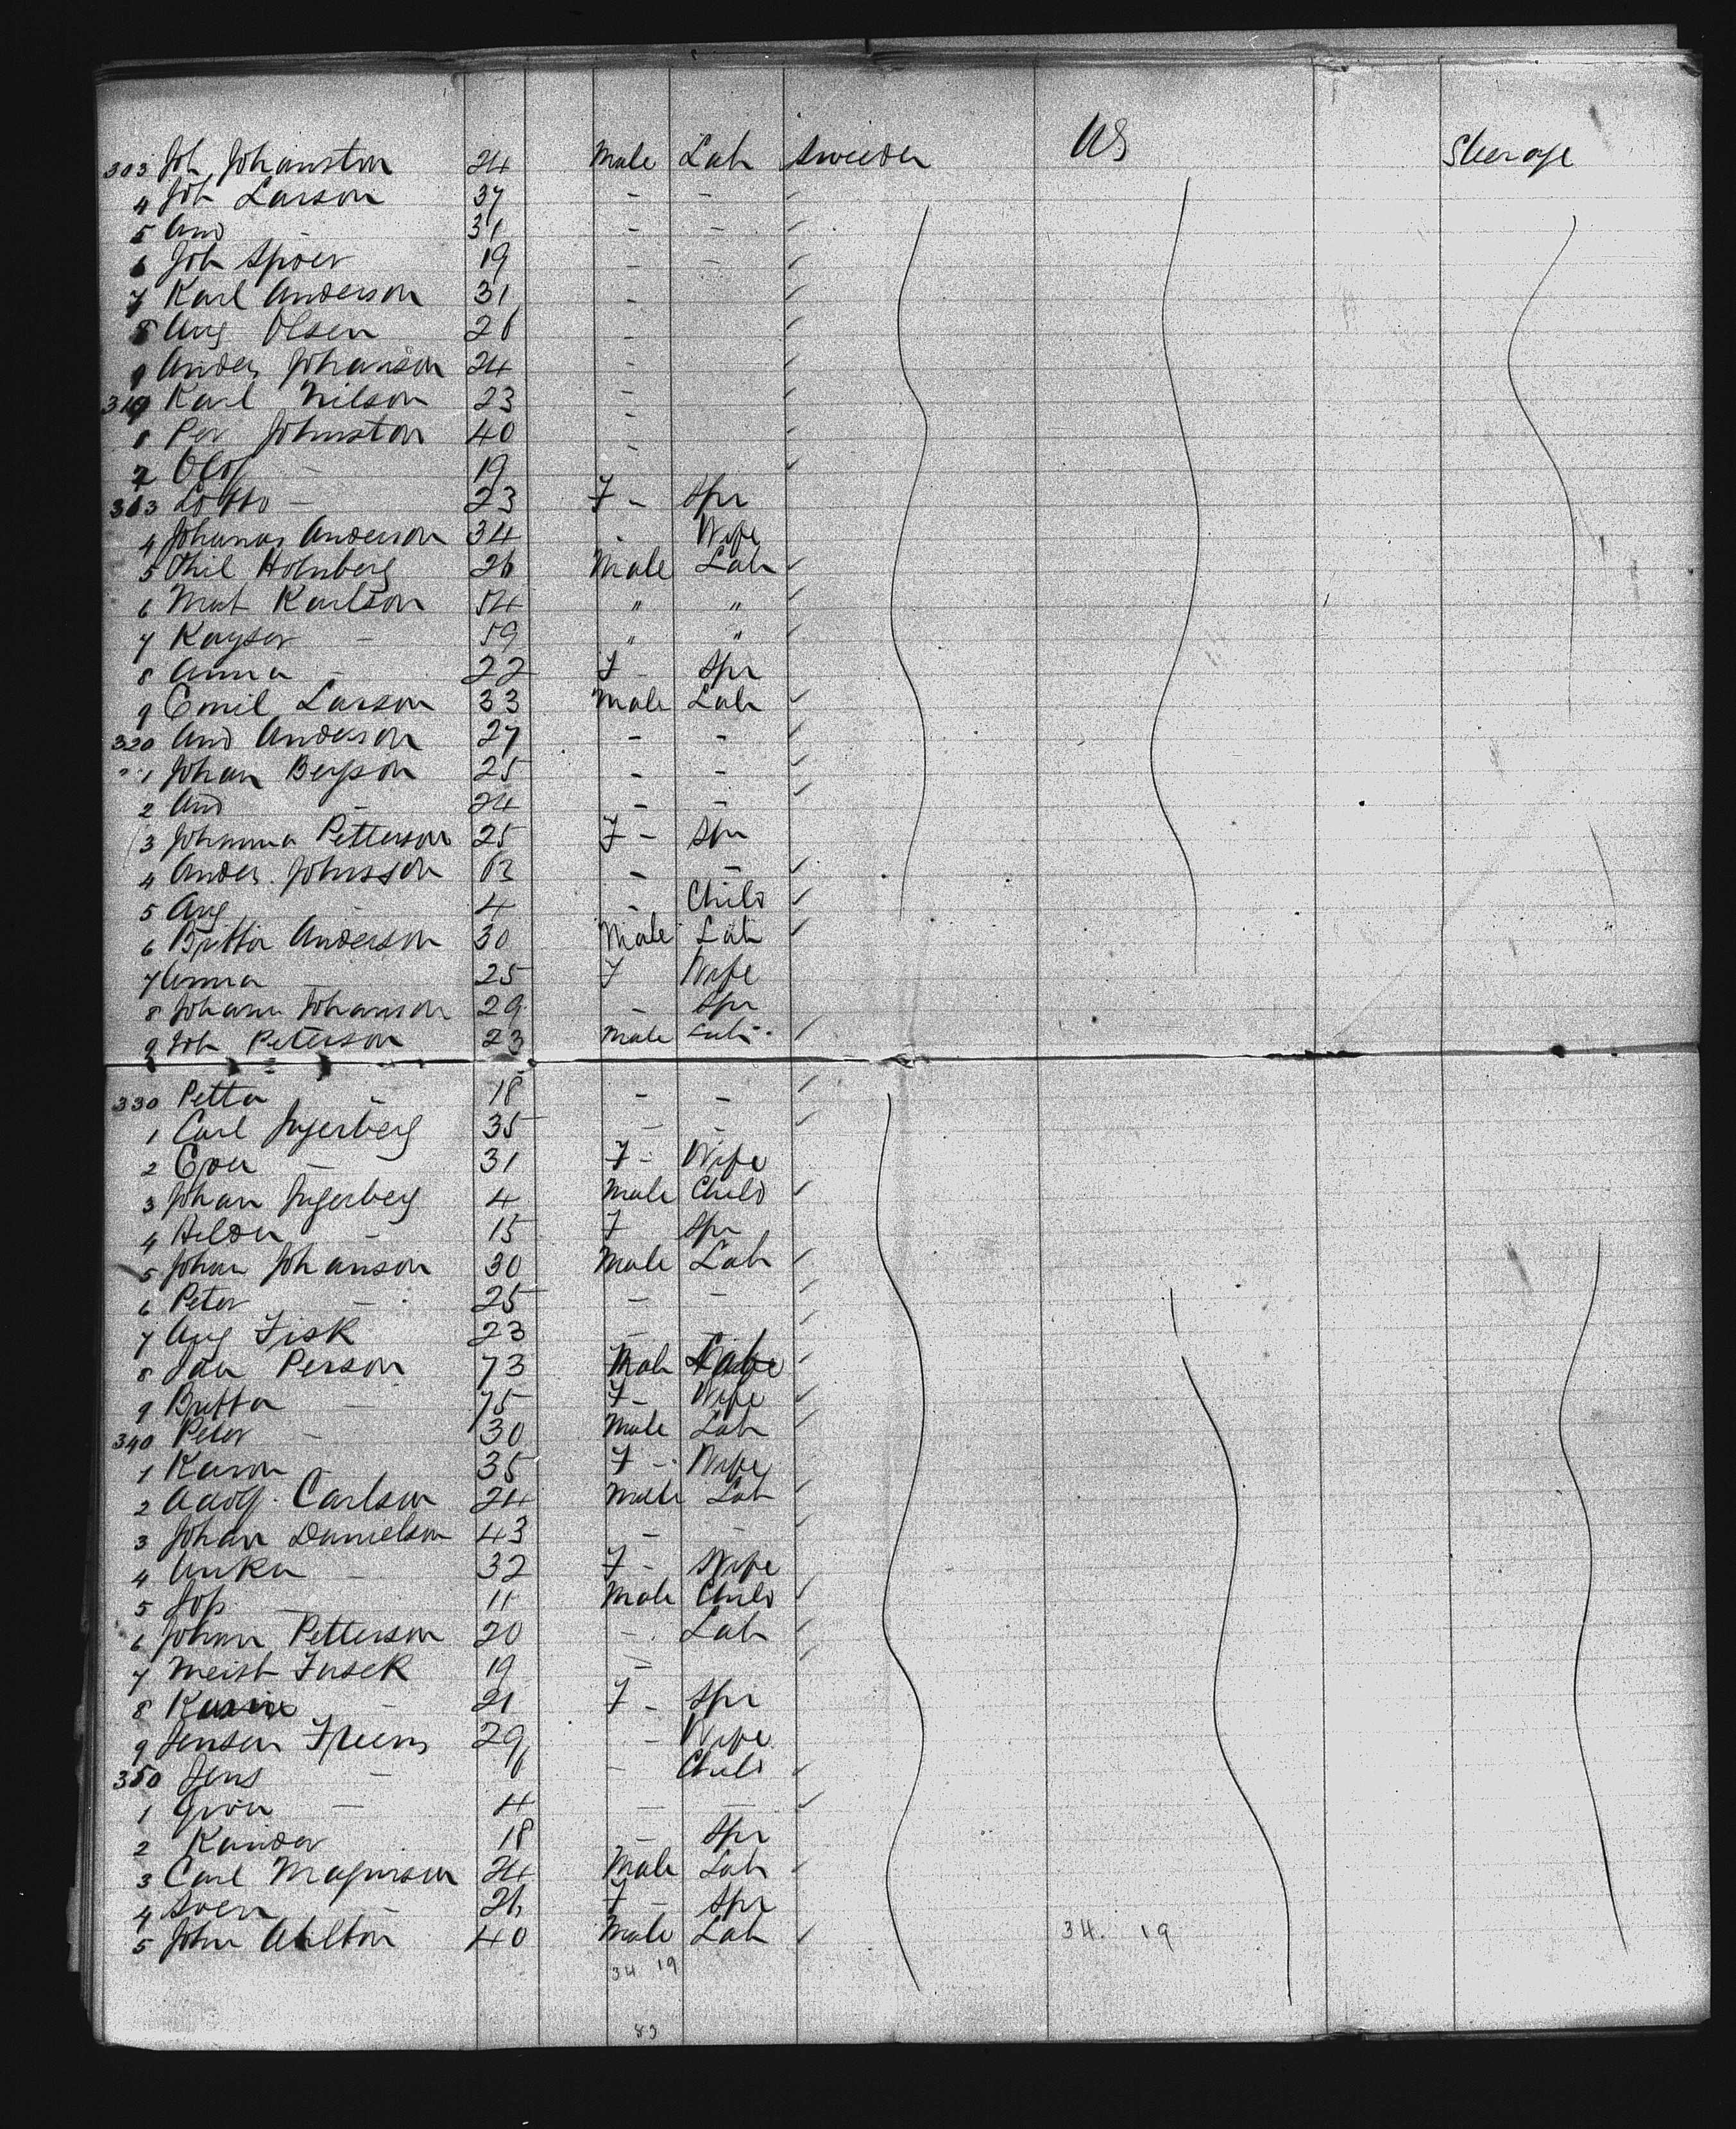 303 Joh Johanston 24 Male Lab Sweden US Steerage
4 Joh Larson 37 - -
5 And - 31 - -
6 Joh Spoer 19 - -
7 Karl Anderson 31 -
8 Aug Olsen 26 -
9 Ander Johanson 24 -
310 Karl Nilson 23 -
Per Johnston 40 -
2 Olof - 19 -
313 Lotto - 23 F - Spr
4 Johanas Anderson 34 - Wife
5 Thil Holmberg 26 Male Lab
6 Mat Karlson 54 " "
7 Kayser - 59 " "
8 Anna - 22 F Spr
9 Emil Larson 33 Male Lab
320 And Anderson 27 - -
1 Johan Bergson 25 - -
2 And - 24 - -
3 Johanna Petterson 25 F - Spr
4 Ander. Johnsson - -
5 Aug - 4 - Child
6 Britta Anderson 30 Male Lab
7 Anna - 25 F Wife
8 Johann Johanson 29 - Spr
9 Joh Peterson 23 Male Lab
330 Petta - 18 - -
1 Carl Ingerberg 35 - -
2 - 31 F - Wife
3 Johan Ingerberg 4 Male Child
4 Hilda - 15 F Spr
5 Johan Johanson 30 Male Lab
6 Peter - 25 - -
7 Aug Fisk 23 - -
8 Jan Person 73 Male
9 Britta - 75 F - Wife
340 Peter - 30 Male Lab
1 Karon - 35 F - Wife
2 Adolf. Carlson 24 Male Lab
3 Johan Danielson 43 - -
4 Anka - 32 F - Wife
5 Jos - 11 Male Child
6 Johan Petterson 20 - Lab
7 Meist Fusek 19 -
8 - 21 F - Spr
9 Jensen 29 - Wife
350 Jens - - Child
1 - 4 - -
2 Kander 18 - Spr
3 Carl Magnusson 24 Male Lab
4 Sven - 26 F - Spr
5 John Ahlton 40 Male Lab 34. 19
34 19
83